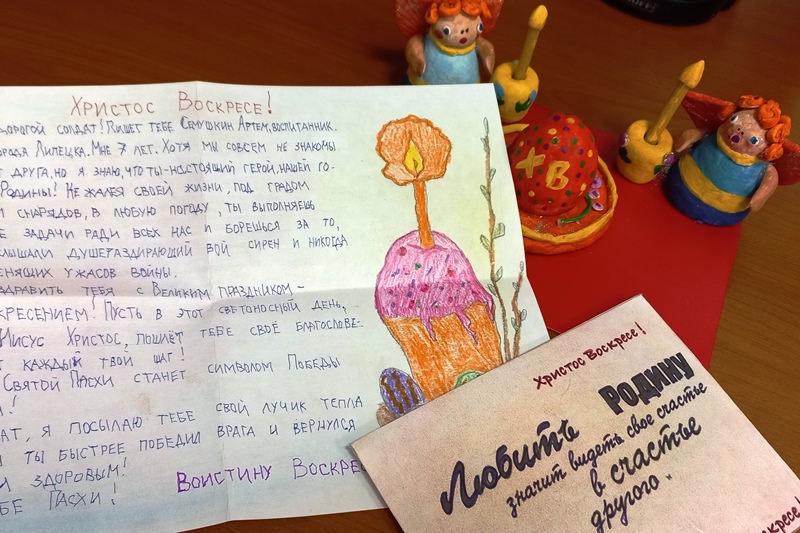 Христос Воскресе!
дорогой солдат! Пишет тебе Семушкин Артем, воспитанник.
орода Липецка. Мне 7 лет. Хотя мы совсем не знакомы
т друга, но я знаю, что ты-настоящий герой, нашей го-
Родины! Не жалея своей жизни, под градом
и снарядов, в любую погоду, ты выполняешь
е задачи ради всех нас и борешься за то,
лышали душераздирающий вой сирен и никогда
енящих ужасов войны.
здравить тебя с Великим праздником -
кресением! Пусть в этот светоносный день,
Иисус Христос, пошлёт тебе своё благослове-
т каждый твой шаг!
Святой Пасхи станет символом Победы
а!
ат, я посылаю тебе свой лучик тепла
ты быстрее победил врага и вернулся
и здоровым!
Воистину Воскре
бе Пасхи!
ХВ
Христос Воскресе!
Любить Родину
значит видеть свое счастье
в счастье
другого
скресе!